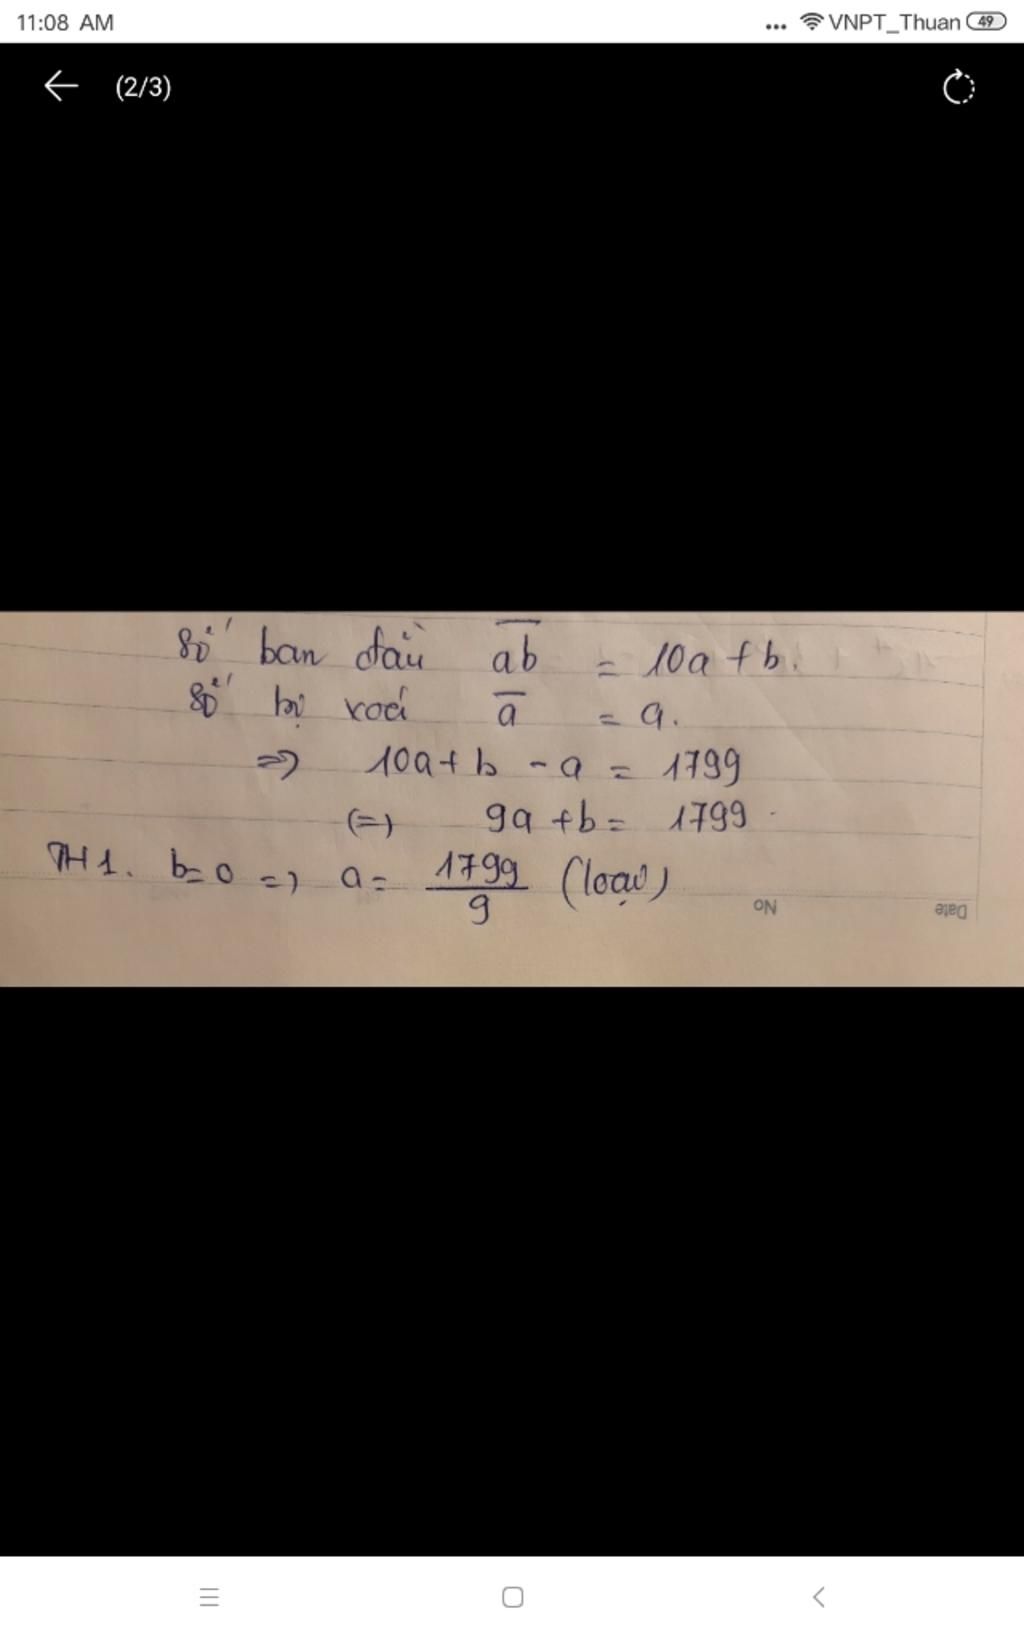 11:08 AM
... VNPT_Thuan 49
(2/3)
Số ban đầu ab = 10a + b.
Số bị xoá a = a.
=> 10a + b - a = 1799
(=) 9a + b = 1799
TH1. b = 0 => a = 1799/9 (loại)
No Date